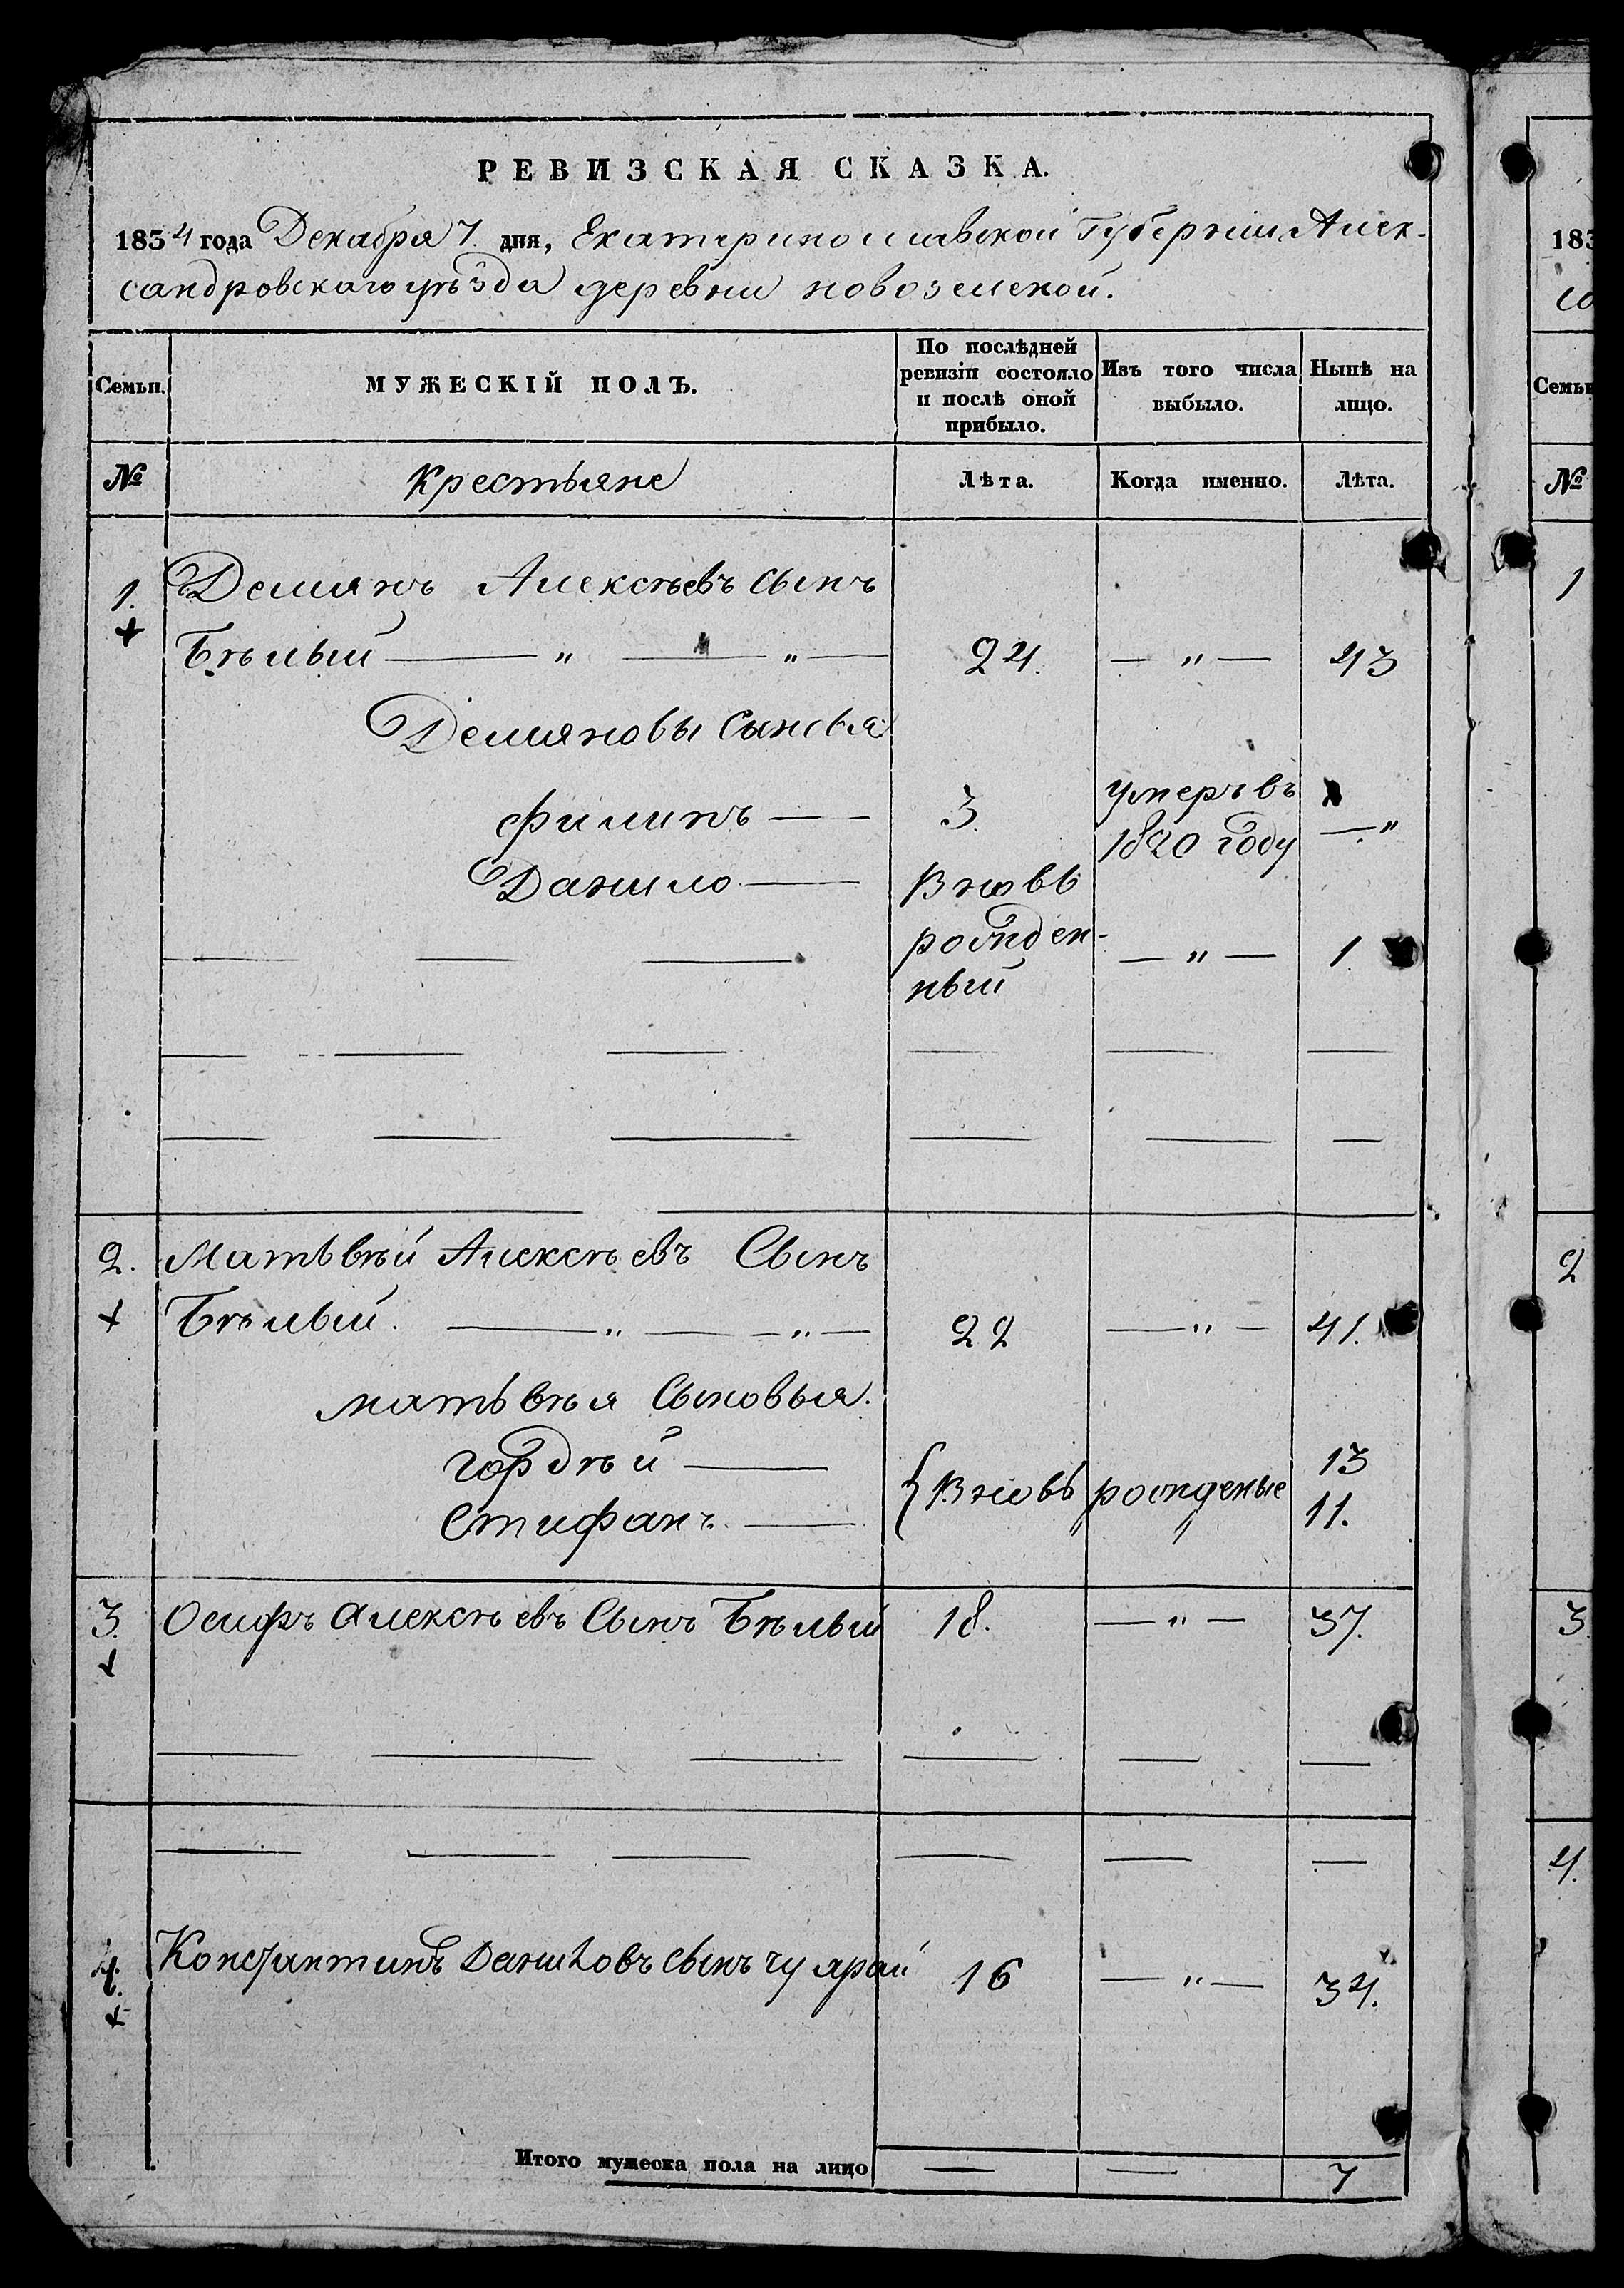 РЕВИЗСКАЯ СКАЗКА.
1834 года Декабря 7. дня, Екатеринославской Губерніи, Алек-
сандровскаго уѣзда деревни новоземской.
Семьи. МУЖЕСКІЙ ПОЛЪ. По послѣдней ревизіи состояло и послѣ оной прибыло. Изъ того числа выбыло. Нынѣ на лицо.
№ Крестьяне Лѣта. Когда именно. Лѣта.
1. Демиянъ Алексѣевъ сынъ
Бѣлый — „ — „ — 24. — „ — 43
Демияновы Сыновья
филипъ — 3. умеръ въ 1820 году — „
Данило — Вновь рожден-ный — „ — 1.
2. Матьвѣй Алексѣевъ Сынъ
Бѣлый. — „ — „ — 22 — „ — 41.
матьвѣя Сыновья.
гордѣй — { Вновь рожденые 13
Стифанъ. — „ „ 11.
3. Осифъ Алексѣевъ Сынъ Бѣлый 18. — „ — 37.
4. Константинъ Даниловъ сынъ 16 — „ — 34.
Итого мужеска пола на лицо — — 7
183
со
Семьи
№
1
2
3.
4.